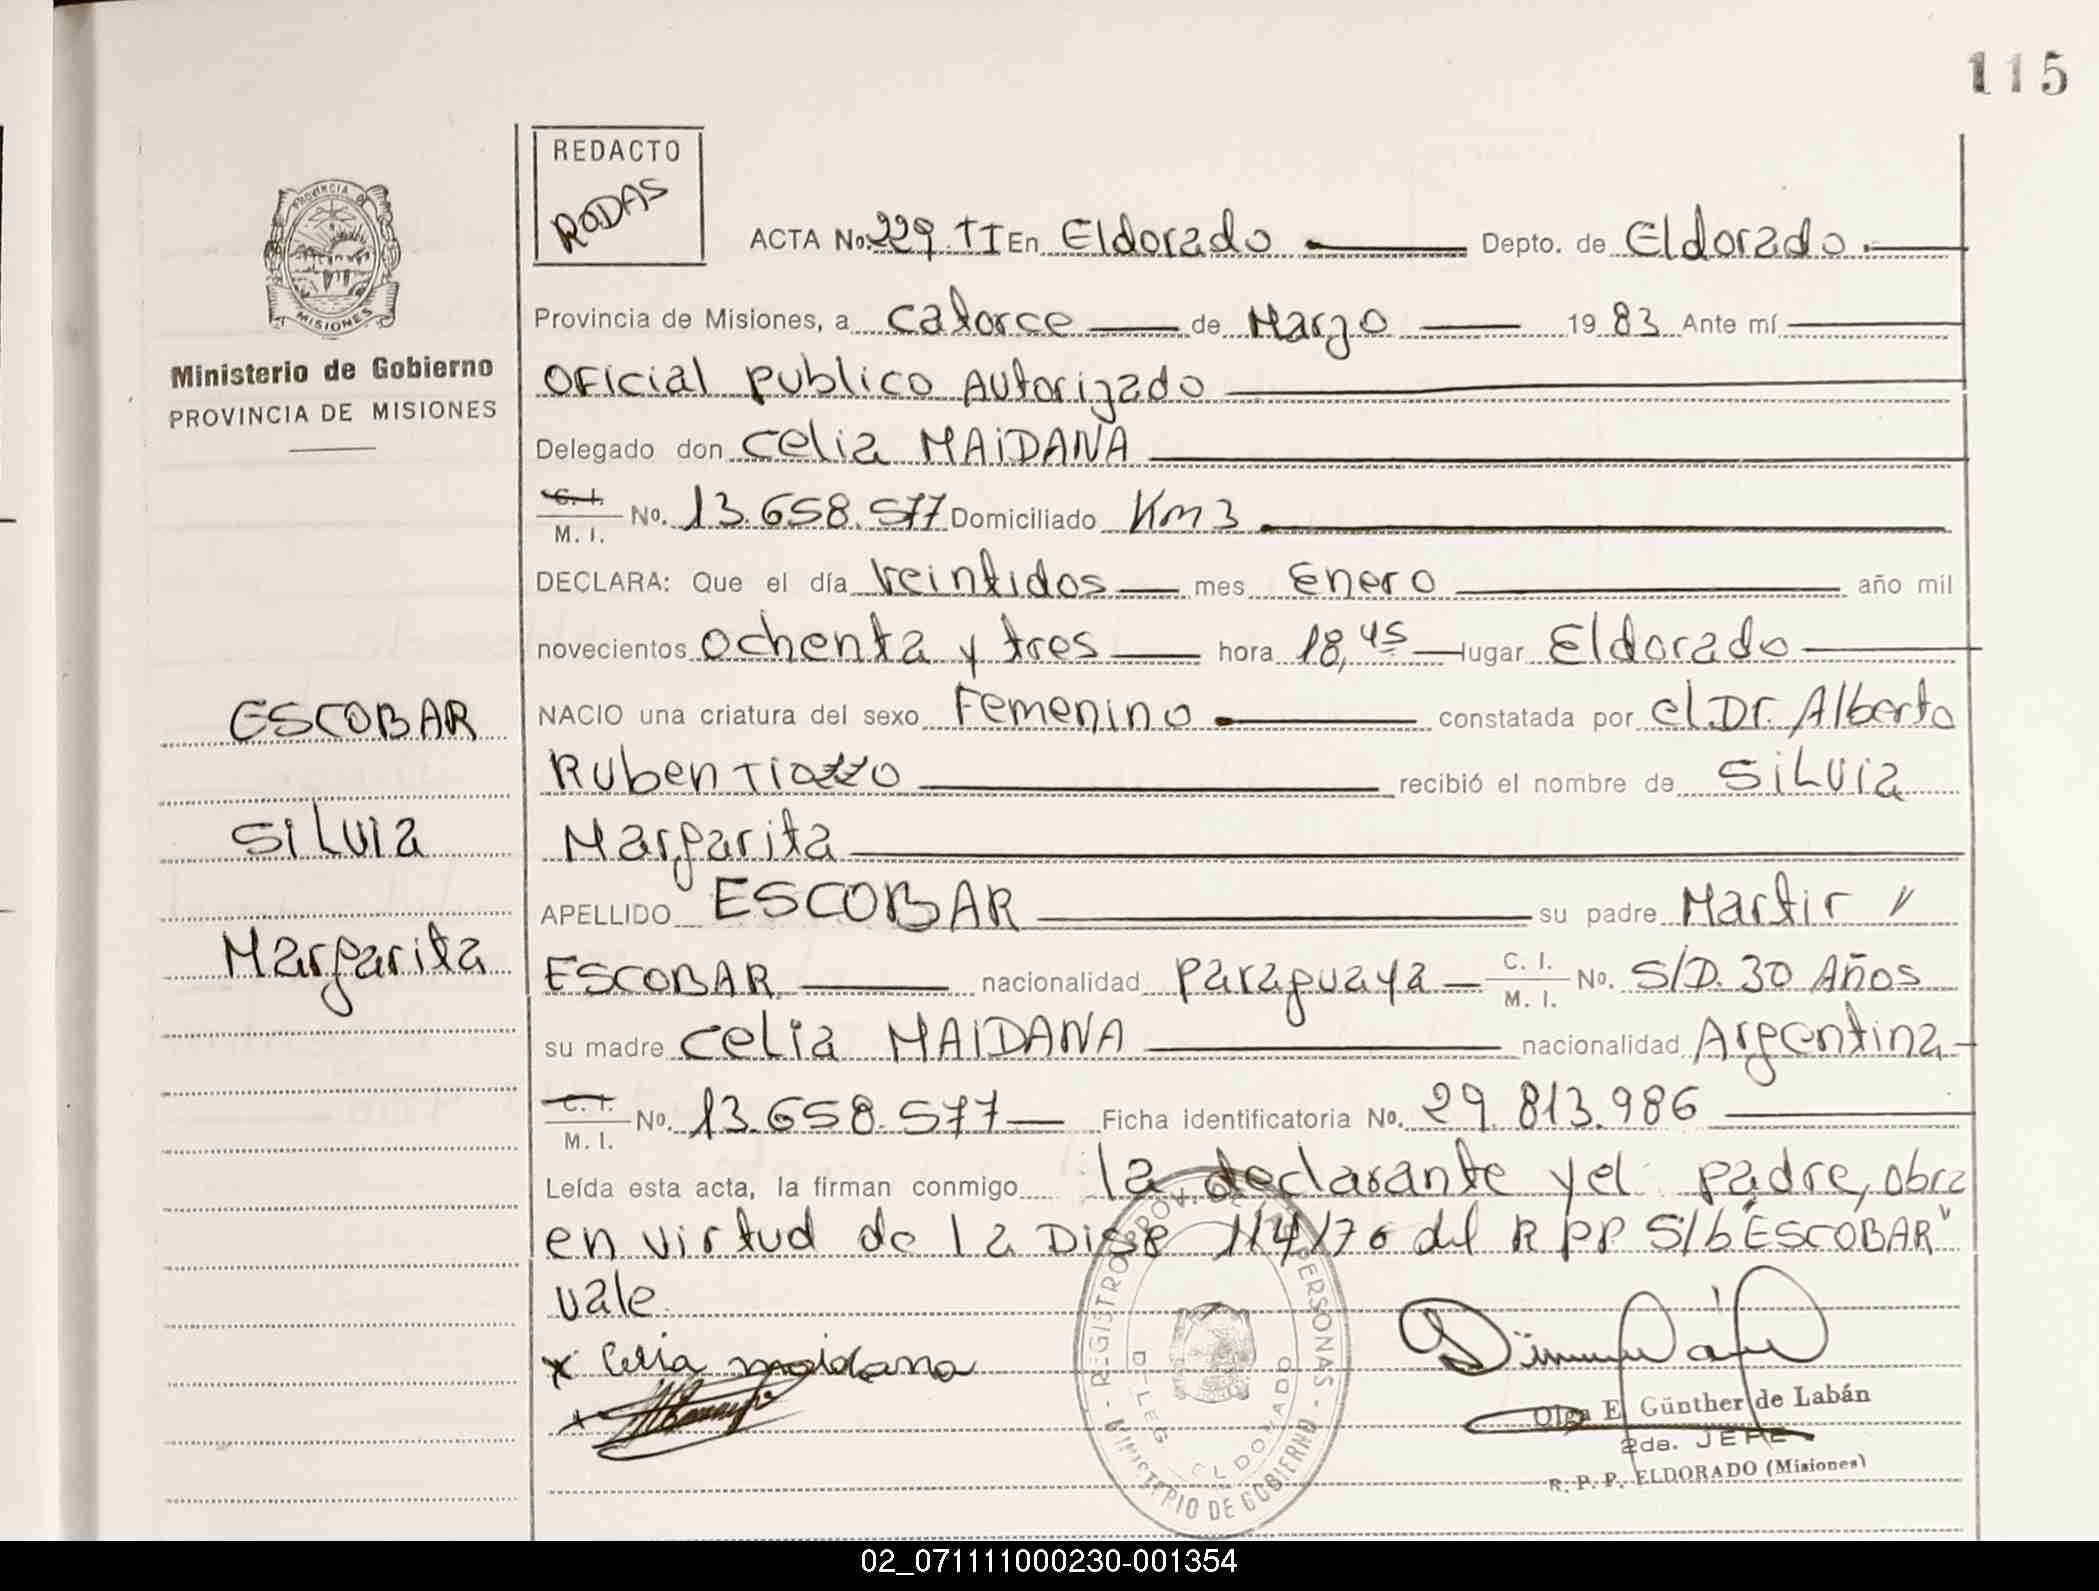 115
PROVINCIA DE
MISIONES
Ministerio de Gobierno
PROVINCIA DE MISIONES
ESCOBAR
SILVIA
Margarita
REDACTO
RODAS
ACTA No. 229 TI En Eldorado Depto. de Eldorado.
Provincia de Misiones, a catorce de Marzo 19 83 Ante mí
Oficial publico Autorizado
Delegado don Celia MAIDANA
C. I. M. I. No. 13.658.577 Domiciliado Km 3
DECLARA: Que el día veintidos mes Enero año mil
novecientos ochenta y tres hora 18,45 lugar Eldorado
NACIO una criatura del sexo Femenino constatada por el Dr. Alberto
Ruben recibió el nombre de SILVIA
Margarita
APELLIDO ESCOBAR su padre Martir "
ESCOBAR nacionalidad Paraguaya C. I. M. I. No. S/D. 30 Años
su madre Celia MAIDANA nacionalidad Argentina
C. I. M. I. No. 13.658.577 Ficha identificatoria No. 29.813.986
Leída esta acta, la firman conmigo la declarante y el padre, obra
en virtud de la Disp 114/76 del R PP S/b "ESCOBAR"
vale
x Celia maidana
REGISTRO PROV. DE PERSONAS - MINISTERIO DE GOBIERNO -
DELEG. ELDORADO
Olga E. Günther de Labán
2da. JEFE
R. P. P. ELDORADO (Misiones)
02_071111000230-001354